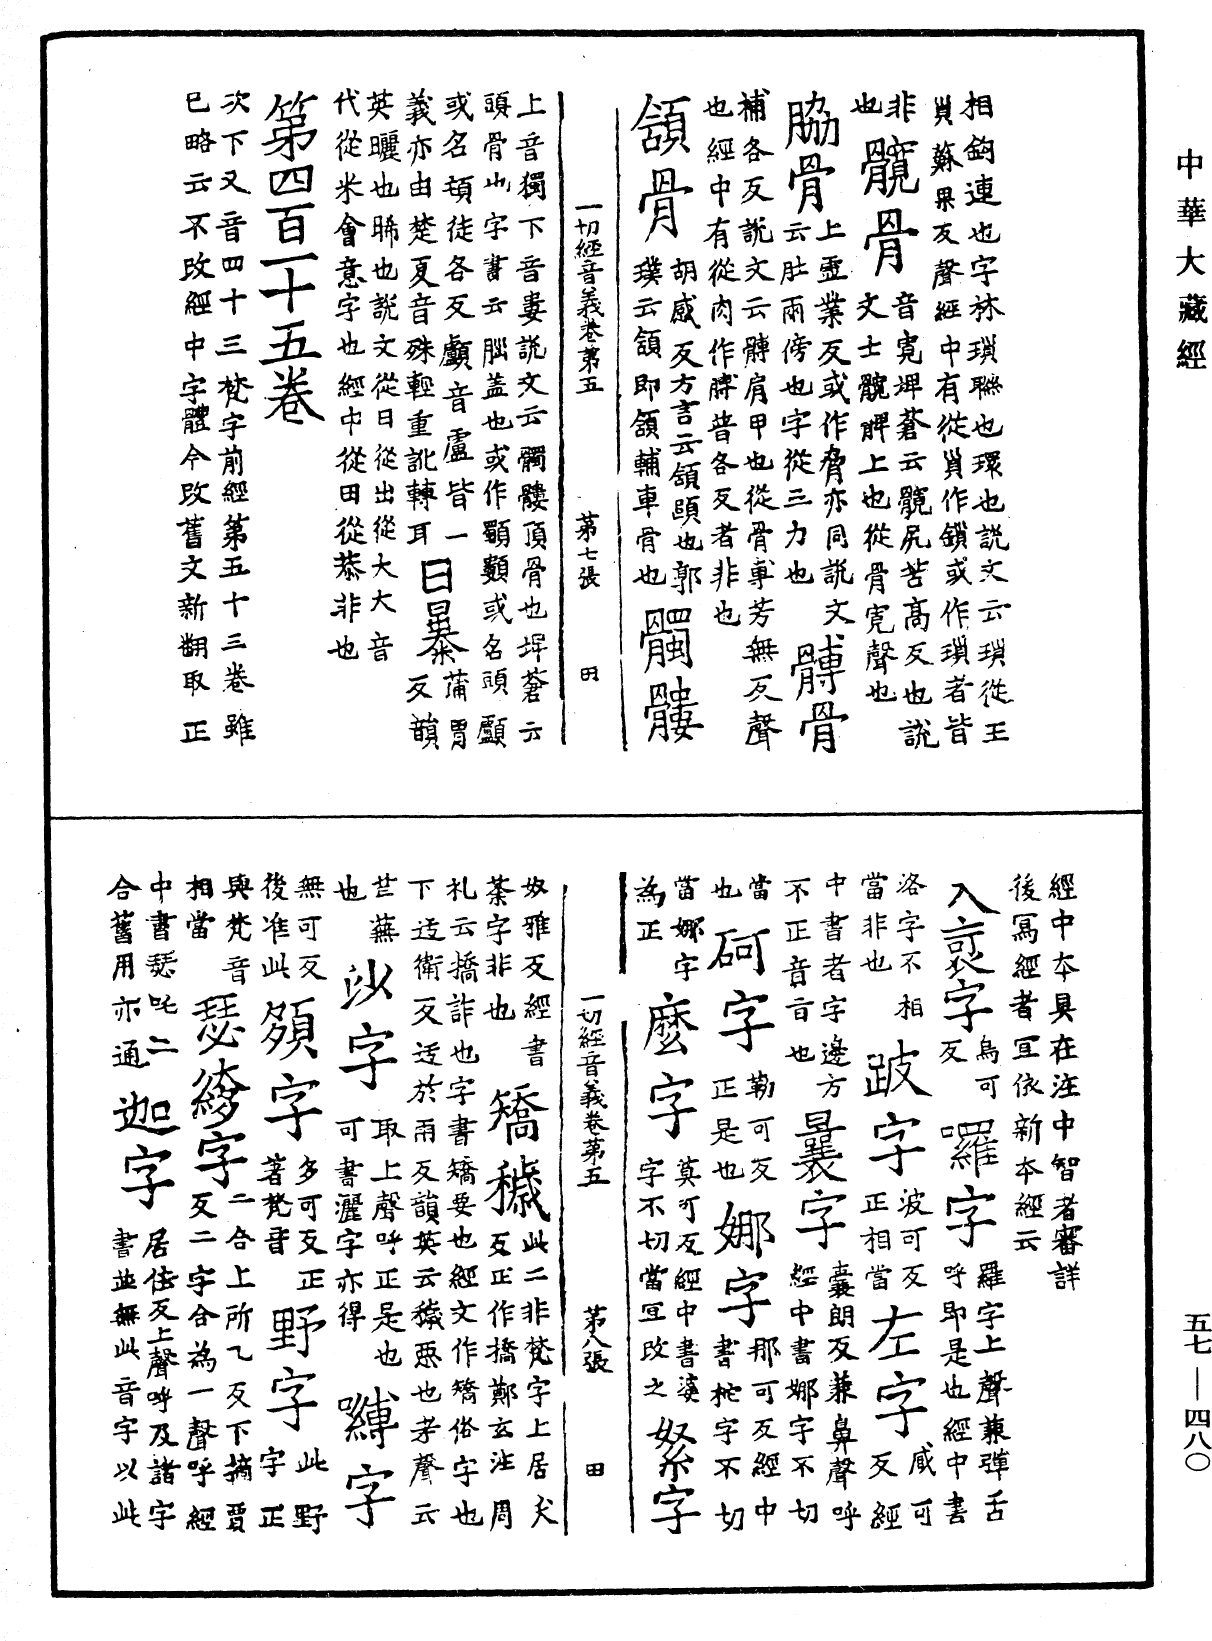 中華大藏經
相鉤連也字林瑣聮也環也說文云瑣從王
𧴪蘇果反聲經中有從𧴪作鎖或作瑣者皆
非也
髖骨
音寬埤蒼云髖尻苦高反也說
文士髖髀上也從骨寬聲也
脇骨
上虛業反或作脅亦同說文
云肚兩傍也字從三力也
髆骨
補各反說文云髆肩甲也從骨專芳無反聲
也經中有從肉作膊普各反者非也
頷骨
胡感反方言云頷頤也郭
璞云頷即頷輔車骨也
髑髏
一切經音義卷第五 第七張 田
上音獨下音婁說文云髑髏頂骨也埤蒼云
頭骨也字書云腦蓋也或作䫳䫫或名頭顱
或名頓徒各反顱音盧皆一
義亦由楚夏音殊輕重訛轉耳
日暴
蒲冒反韻
英曬也晞也說文從日從出從大大音
代從米會意字也經中從田從恭非也
第四百一十五卷
次下又音四十三梵字前經第五十三卷雖
已略云不改經中字體今改舊文新翻取正
經中本具在注中智者審詳
後寫經者宜依新本經云
入裒字
烏可反
囉字
羅字上聲兼彈舌
呼即是也經中書
洛字不相
當非也
跛字
波可反
正相當
左字
臧可反經
中書者字邊方
不正音亘也
曩字
囊朗反兼鼻聲呼
經中書娜字不切
當也
砢字
勒可反
正是也
娜字
那可反經中
書柁字不切
當娜字
為正
麼字
莫可反經中書婆
字不切當宜改之
絮字
一切經音義卷第五 第八張 田
奴雅反經書
荼字非也
矯穢
此二非梵字上居夭
反正作撟鄭玄注周
禮云撟詐也字書矯妄也經文作矯俗字也
下迃衛反迃於雨反韻英云穢惡也考聲云
荒蕪也
𣲡字
取上聲呼正是也
可書灑字亦得
嚩字
無可反
後准此
頞字
多可反正
著梵音
野字
此野字正
與梵音
相當
瑟縿字
二合上所乙反下摘賈
反二字合為一聲呼經
中書瑟吒二
合舊用亦通
迦字
居佉反上聲呼及諸字
書並無此音字以此
五七—四八〇